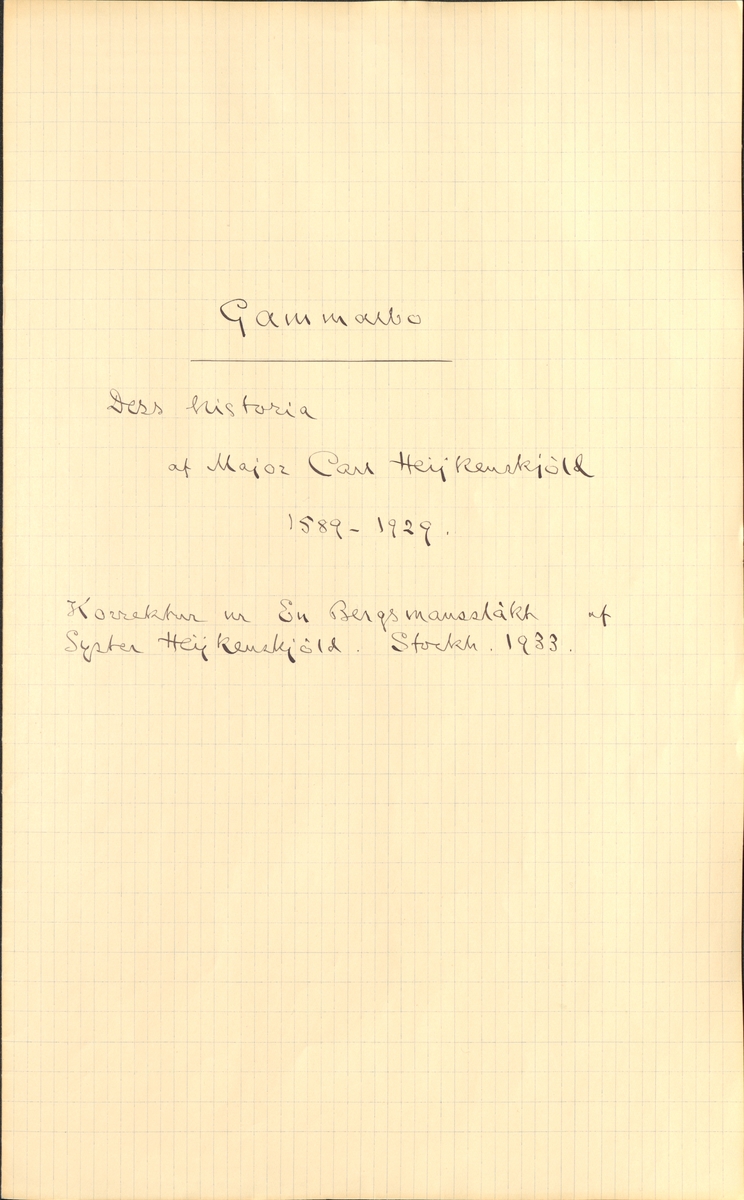 Gammalbo
Dess historia
af Major Carl Heijkenskjöld
1589-1929.
Korrektur ur En Bergsmanssläkt af
Syster Heijkenskjöld. Stockh. 1933.